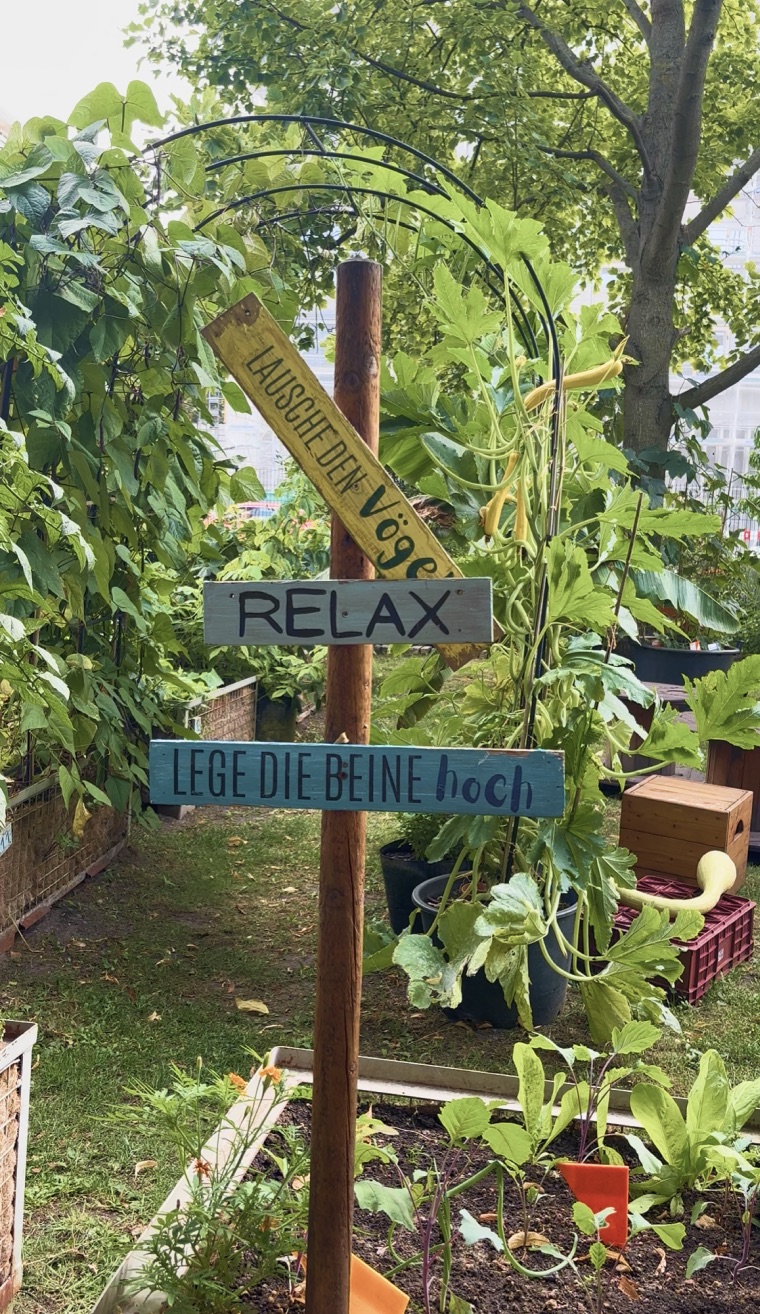 LAUSCHE DEN Vöge
RELAX
LEGE DIE BEINE hoch